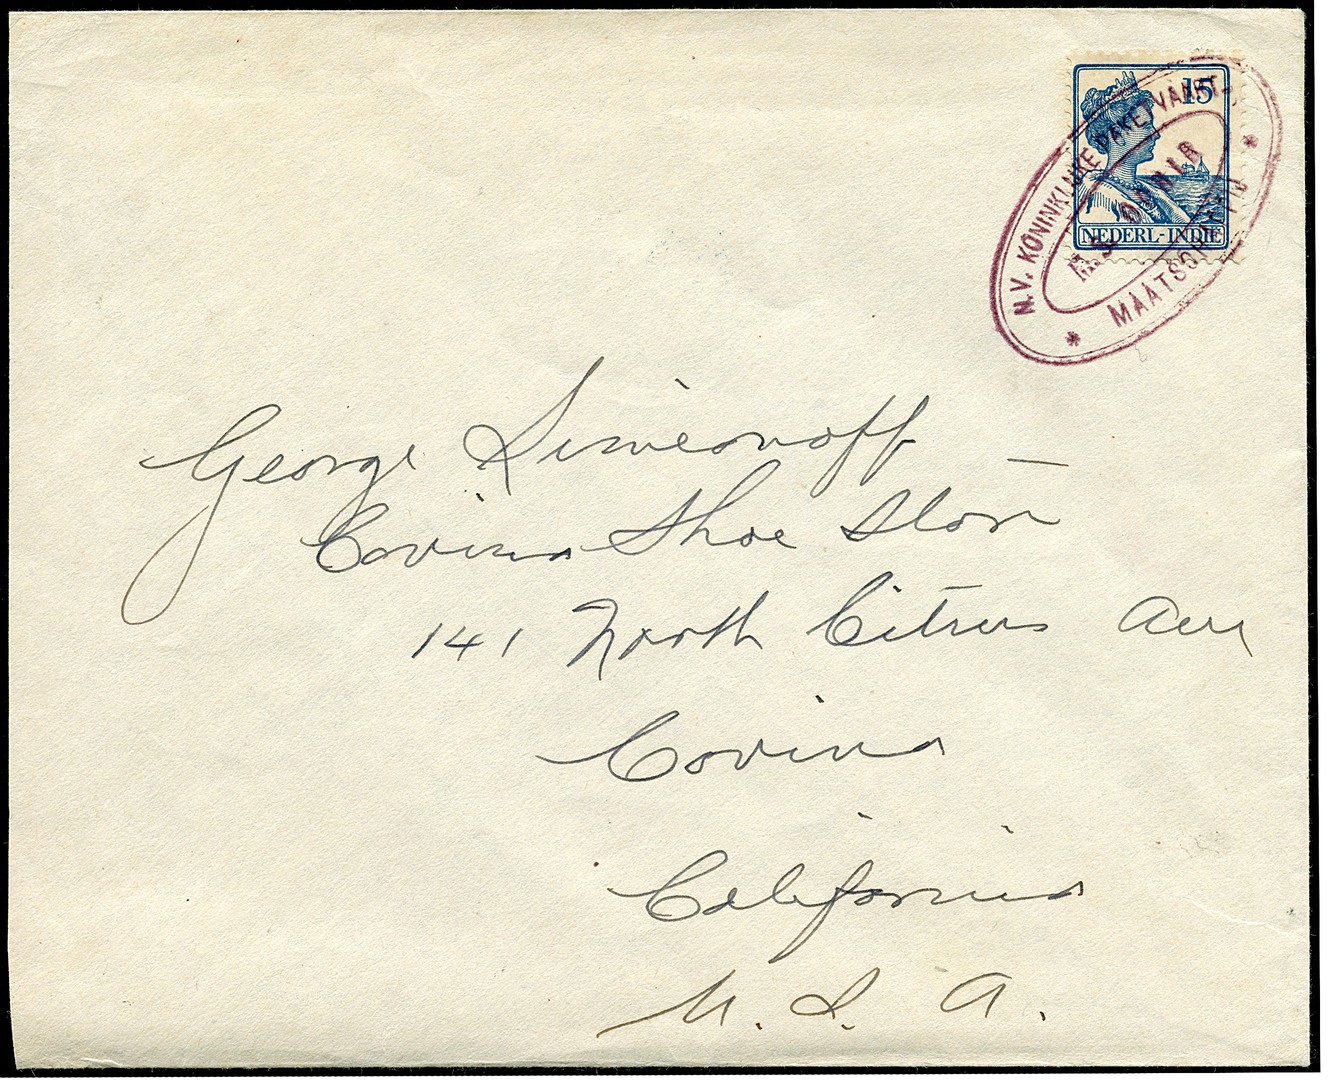 15
NEDERL-INDIE
N.V. KONINKLIJKE PAKETVAART-
MAATSCHAPPIJ
M.S.
George Simeonoff
Covina Shoe Store
141 North Citrus Ave
Covina
California
U. S. A.